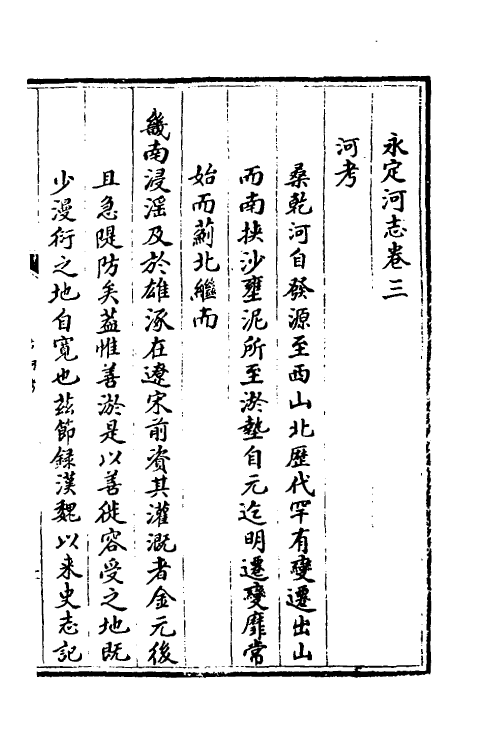 永定河志卷三
河考
桑乾河自發源至西山北歷代罕有變遷出山
而南挾沙壅泥所至淤墊自元迄明遷變靡常
始而薊北繼南
畿南浸淫及於雄涿在遼宋前資其灌溉者金元後
且急隄防矣葢惟善淤是以善徙容受之地既
少漫衍之地自寬也茲節録漢魏以來史志記